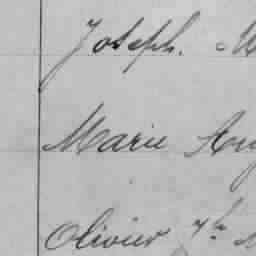 Joseph. M
Marie Au
Olivier